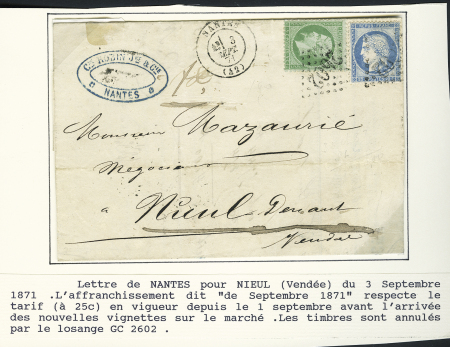 NANTES
3
SEPT
71
(42)
Cs ROBIN Je & Cie
NANTES
2602
Monsieur Mazaurié
Négociant
à Nieul Devant
Vendée
Lettre de NANTES pour NIEUL (Vendée) du 3 Septembre
1871 .L'affranchissement dit "de Septembre 1871" respecte le
tarif (à 25c) en vigueur depuis le 1 septembre avant l'arrivée
des nouvelles vignettes sur le marché .Les timbres sont annulés
par le losange GC 2602 .